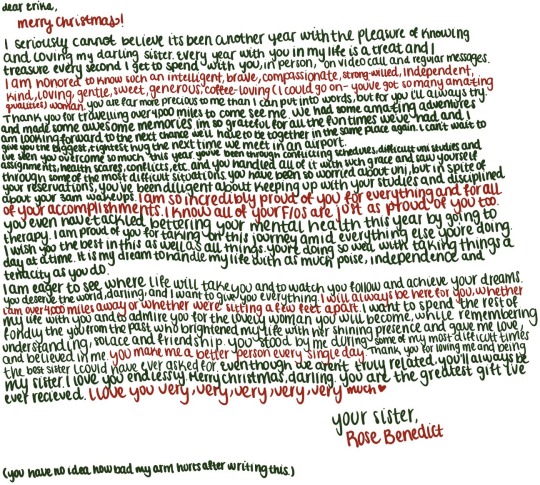 dear erika,
merry christmas!
I seriously cannot believe its been another year with the pleasure of knowing
and loving my darling sister. every year with you in my life is a treat and I
treasure every second I get to spend with you, in person, on video call and regular messages.
I am honored to know such an intelligent, brave, compassionate, strong-willed, independent,
kind, loving, gentle, sweet, generous, coffee-loving (I could go on- you've got so many amazing
qualities) woman. you are far more precious to me than I can put into words, but for you I'll always try.
Thank you for travelling over 4000 miles to come see me. we had some amazing adventures
and made some awesome memories im so grateful for all the fun times we've had and I
am looking forward to the next chance we'll have to be together in the same place again. I can't wait to
give you the biggest, tightest hug the next time we meet in an airport.
I've seen you overcome so much this year. you've been through conflicting schedules, difficult uni studies and
assignments, health scares, conflicts, etc. and you handled all of it with such grace and saw yourself
through some of the most difficult situations you have been so worried about uni, but in spite of
your reservations, you've been diligent about keeping up with your studies and disciplined
about your 3am wakeups. I am so incredibly proud of you for everything and for all
of your accomplishments. I know all of your F/Os are just as proud of you too.
you even have tackled bettering your mental health this year by going to
therapy. I am proud of you for taking on this journey amid everything else you're doing.
I wish you the best in this as well as all things. you're doing so well with taking things a
day at a time. It is my dream to handle my life with as much poise, independence and
tenacity as you do.
I am eager to see where life will take you and to watch you follow and achieve your dreams.
you deserve the world, darling, and I want to give you everything. I will always be here for you, whether
I am over 4000 miles away or whether we're sitting a few feet apart. I want to spend the rest of
my life with you and to admire you for the lovely woman you will become, while remembering
fondly the you from the past who brightened my life with her shining presence and gave me love,
understanding, solace and friendship. you stood by me during some of my most difficult times
and believed in me. you make me a better person every single day. Thank you for loving me and being
the best sister I could have ever asked for. even though we aren't truly related, you'll always be
my sister. I love you endlessly. Merry christmas, darling. you are the greatest gift I've
ever recieved. I love you very, very, very, very, very much ♥
your sister,
Rose Benedict
(you have no idea how bad my arm hurts after writing this.)